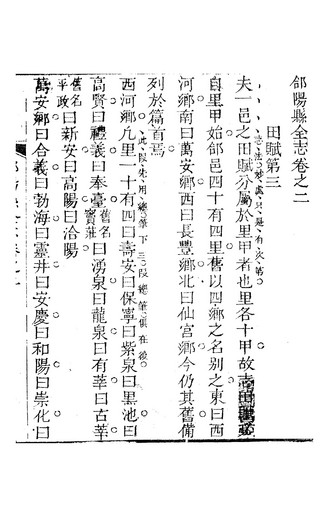 郃陽縣全志卷之二
田賦第三
志法妙處只是有次第
夫一邑之田賦分屬於里甲者也里各十甲故志田賦必
自里甲始郃邑四十有四里舊以四鄉之名别之東曰西
河鄉南曰萬安鄉西曰長豐鄉北曰仙宮鄉今仍其舊備
列於篇首焉
此段先用總筆下三段總筆俱在後
西河鄉凡里一十有四曰壽安曰保寧曰紫泉曰黒池曰
高賢曰禮義曰奉臺舊名寳莊曰湧泉曰龍泉曰有莘曰古莘
舊名平政曰新安曰高陽曰洽陽
萬安鄉曰合義曰勃海曰靈井曰安慶曰和陽曰崇化曰